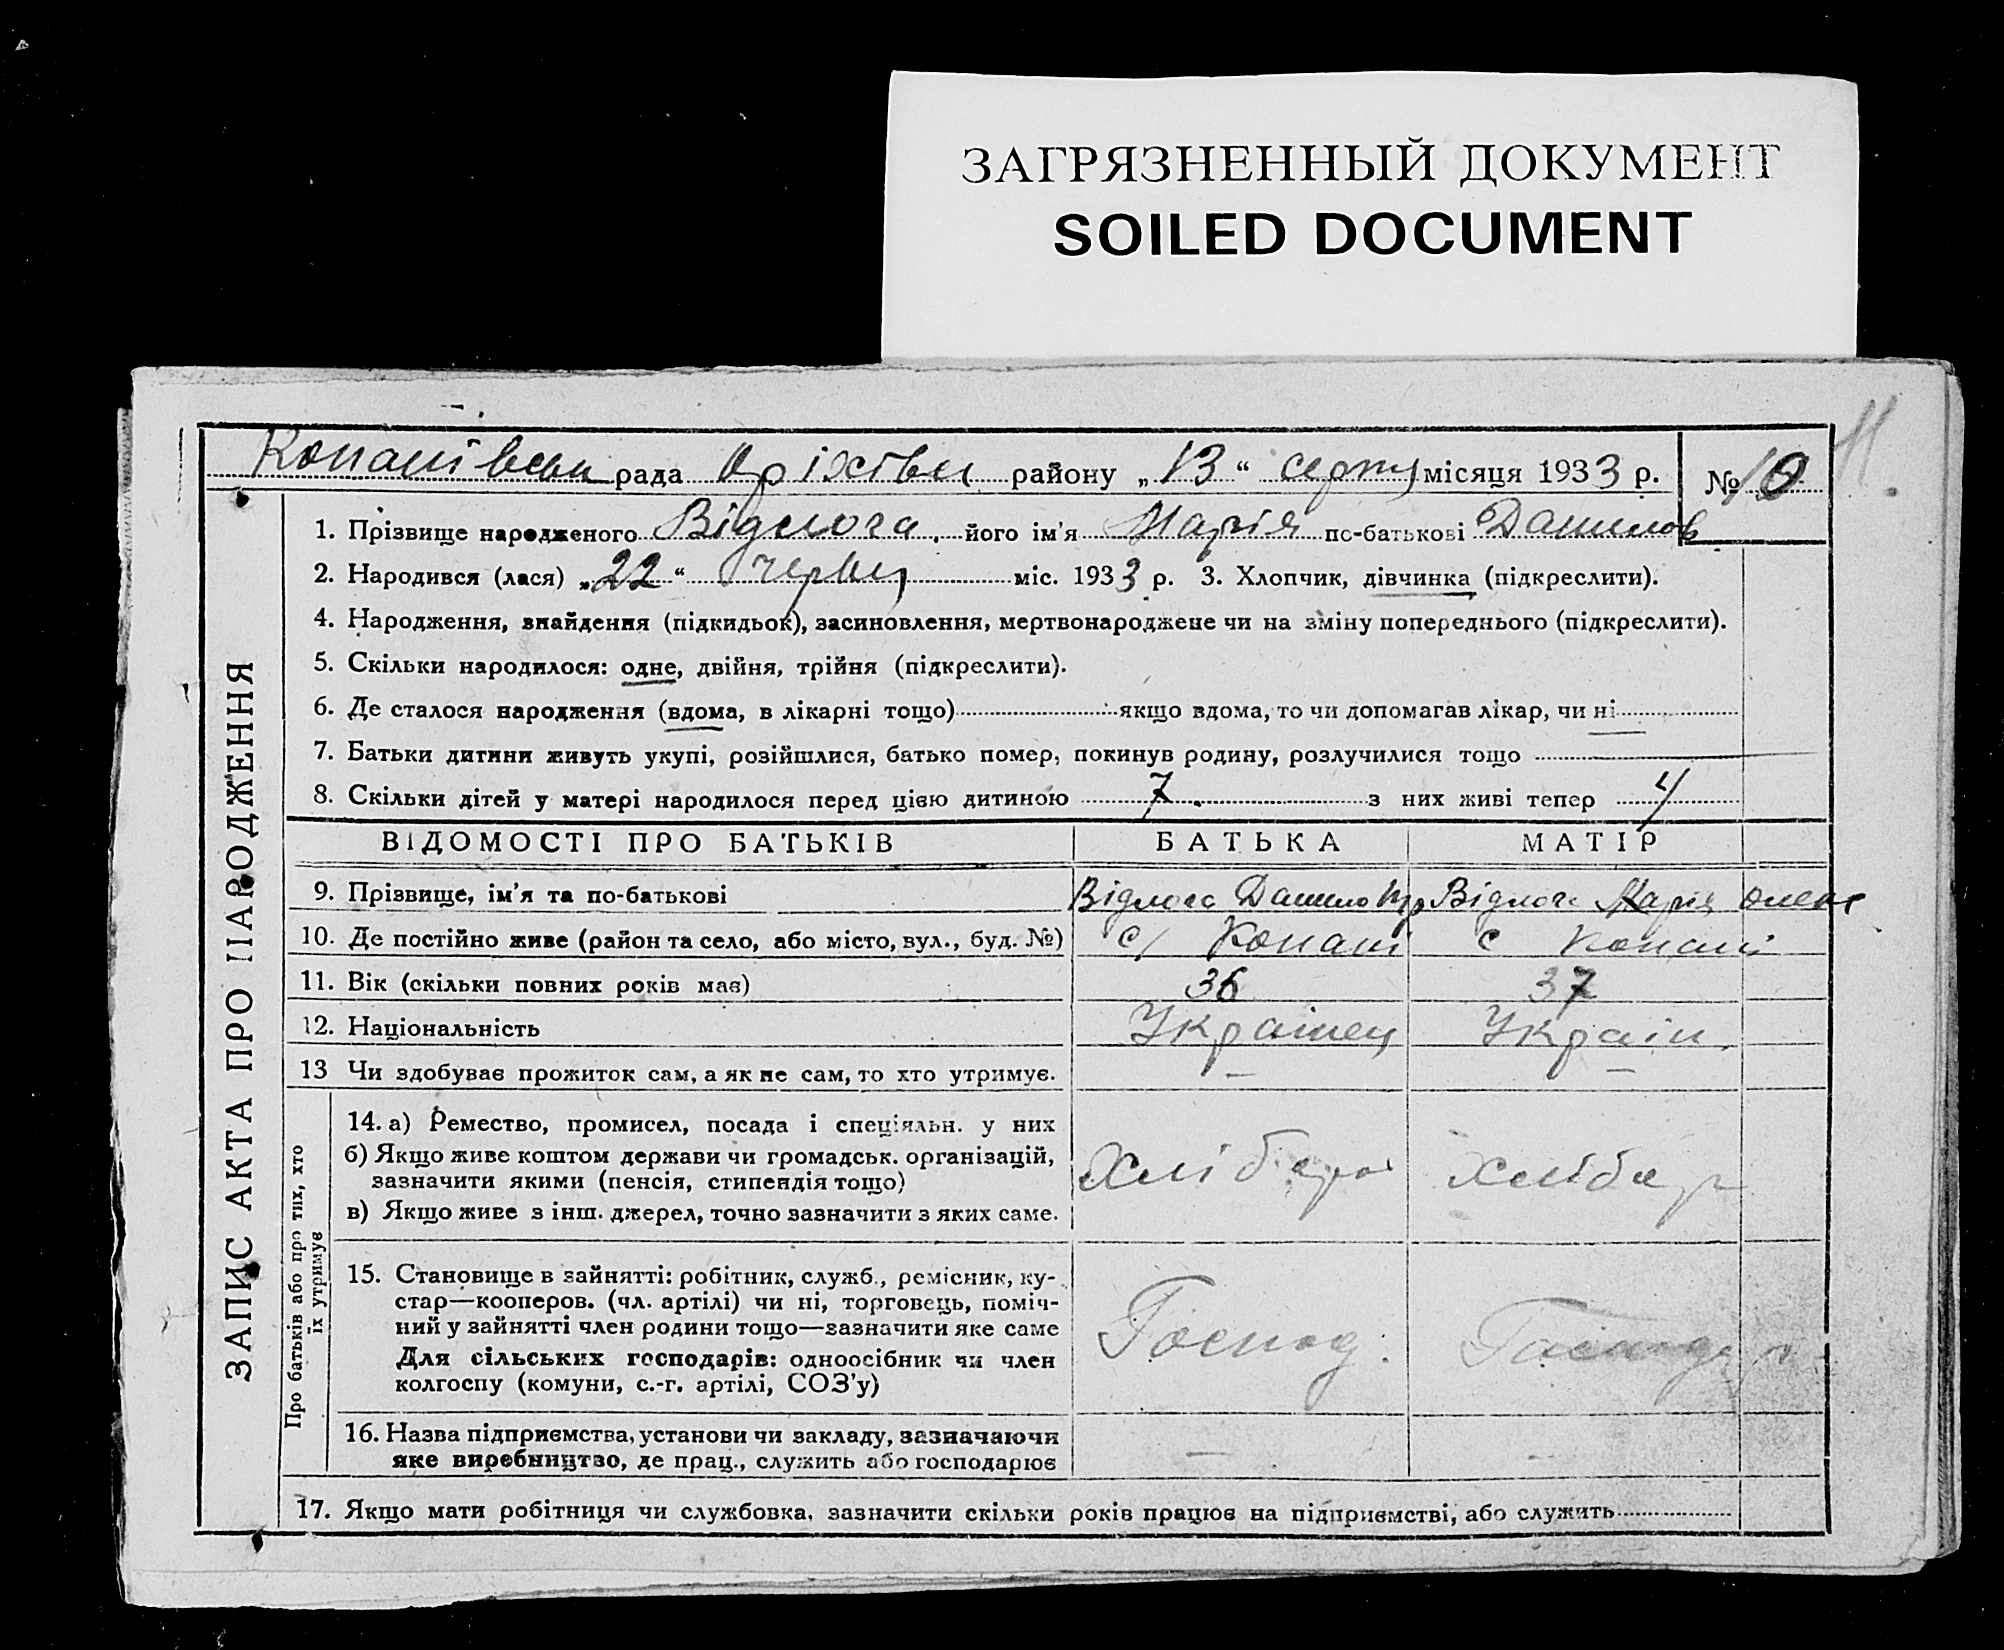 ЗАГРЯЗНЕННЫЙ ДОКУМЕНТ
SOILED DOCUMENT
11.
Копанівськ рада Оріхівськ району „13“ серпня місяця 1933 р. № 10
ЗАПИС АКТА ПРО НАРОДЖЕННЯ
1. Прізвище народженого його ім'я Марія по-батькові Данилов
2. Народився (лася) „22“ червня міс. 1933 р. 3. Хлопчик, дівчинка (підкреслити).
4. Народження, знайдення (підкидьок), засиновлення, мертвонароджене чи на зміну попереднього (підкреслити).
5. Скільки народилося: одне, двійня, трійня (підкреслити).
6. Де сталося народження (вдома, в лікарні тощо) якщо вдома, то чи допомагав лікар, чи ні
7. Батьки дитини живуть укупі, розійшлися, батько помер, покинув родину, розлучилися тощо —
8. Скільки дітей у матері народилося перед цією дитиною 7. з них живі тепер 4
ВІДОМОСТІ ПРО БАТЬКІВ БАТЬКА МАТІР
9. Прізвище, ім'я та по-батькові Данило Марія Олекс
10. Де постійно живе (район та село, або місто, вул., буд. №) с/ Копані с Копані
11. Вік (скільки повних років має) 36 37
12. Національність Українец Україн.
13 Чи здобуває прожиток сам, а як не сам, то хто утримує. — —
Про батьків або про тих, хто
їх утримує
14. а) Ремество, промисел, посада і спеціяльн. у них
б) Якщо живе коштом держави чи громадськ. організацій,
зазначити якими (пенсія, стипендія тощо)
в) Якщо живе з інш. джерел, точно зазначити з яких саме.
Хлібороб хлібор
15. Становище в зайнятті: робітник, служб., ремісник, ку-
стар—кооперов. (чл. артілі) чи ні, торговець, поміч-
ний у зайнятті член родини тощо—зазначити яке саме
Для сільських господарів: одноосібник чи член
колгоспу (комуни, с.-г. артілі, СОЗ'у)
Господ.
16. Назва підприємства, установи чи закладу, зазначаючи
яке виребництво, де прац., служить або господарює
— —
17. Якщо мати робітниця чи службовка, зазначити скільки років працює на підприємстві, або служить